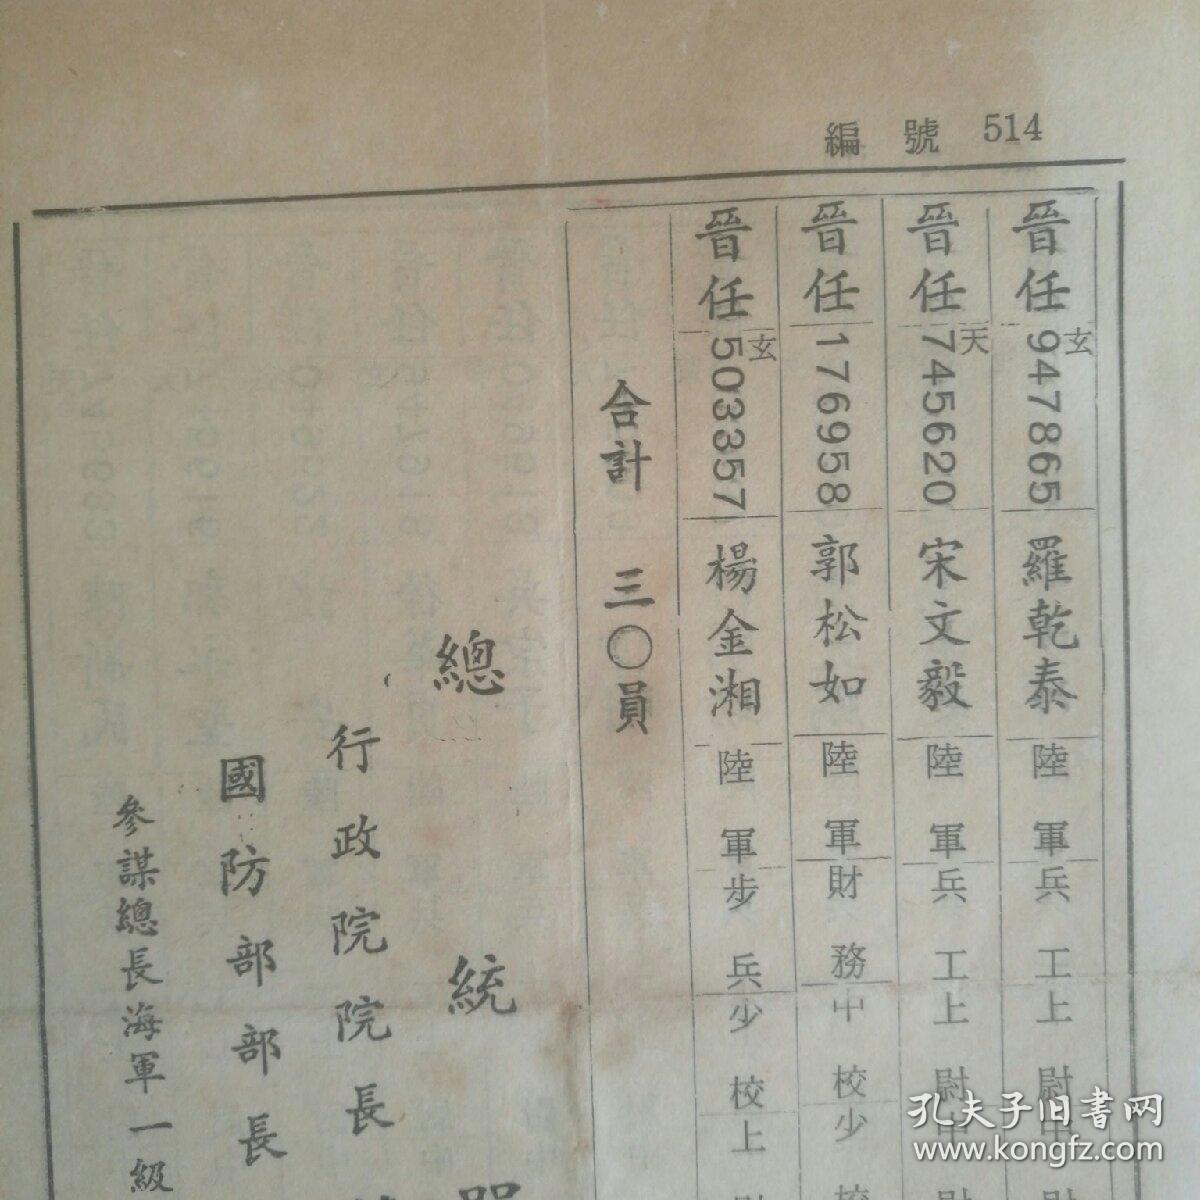 編號 514
晉任 玄947865 羅乾泰 陸軍 兵工 上尉
晉任 天745620 宋文毅 陸軍 兵工 上尉
晉任 176958 郭松如 陸軍 財務 中校 少校
晉任 玄503357 楊金湘 陸軍 步兵 少校 上尉
合計 三〇員
總統
行政院院長
國防部部長
參謀總長海軍一級
孔夫子旧書网
www.kongfz.com